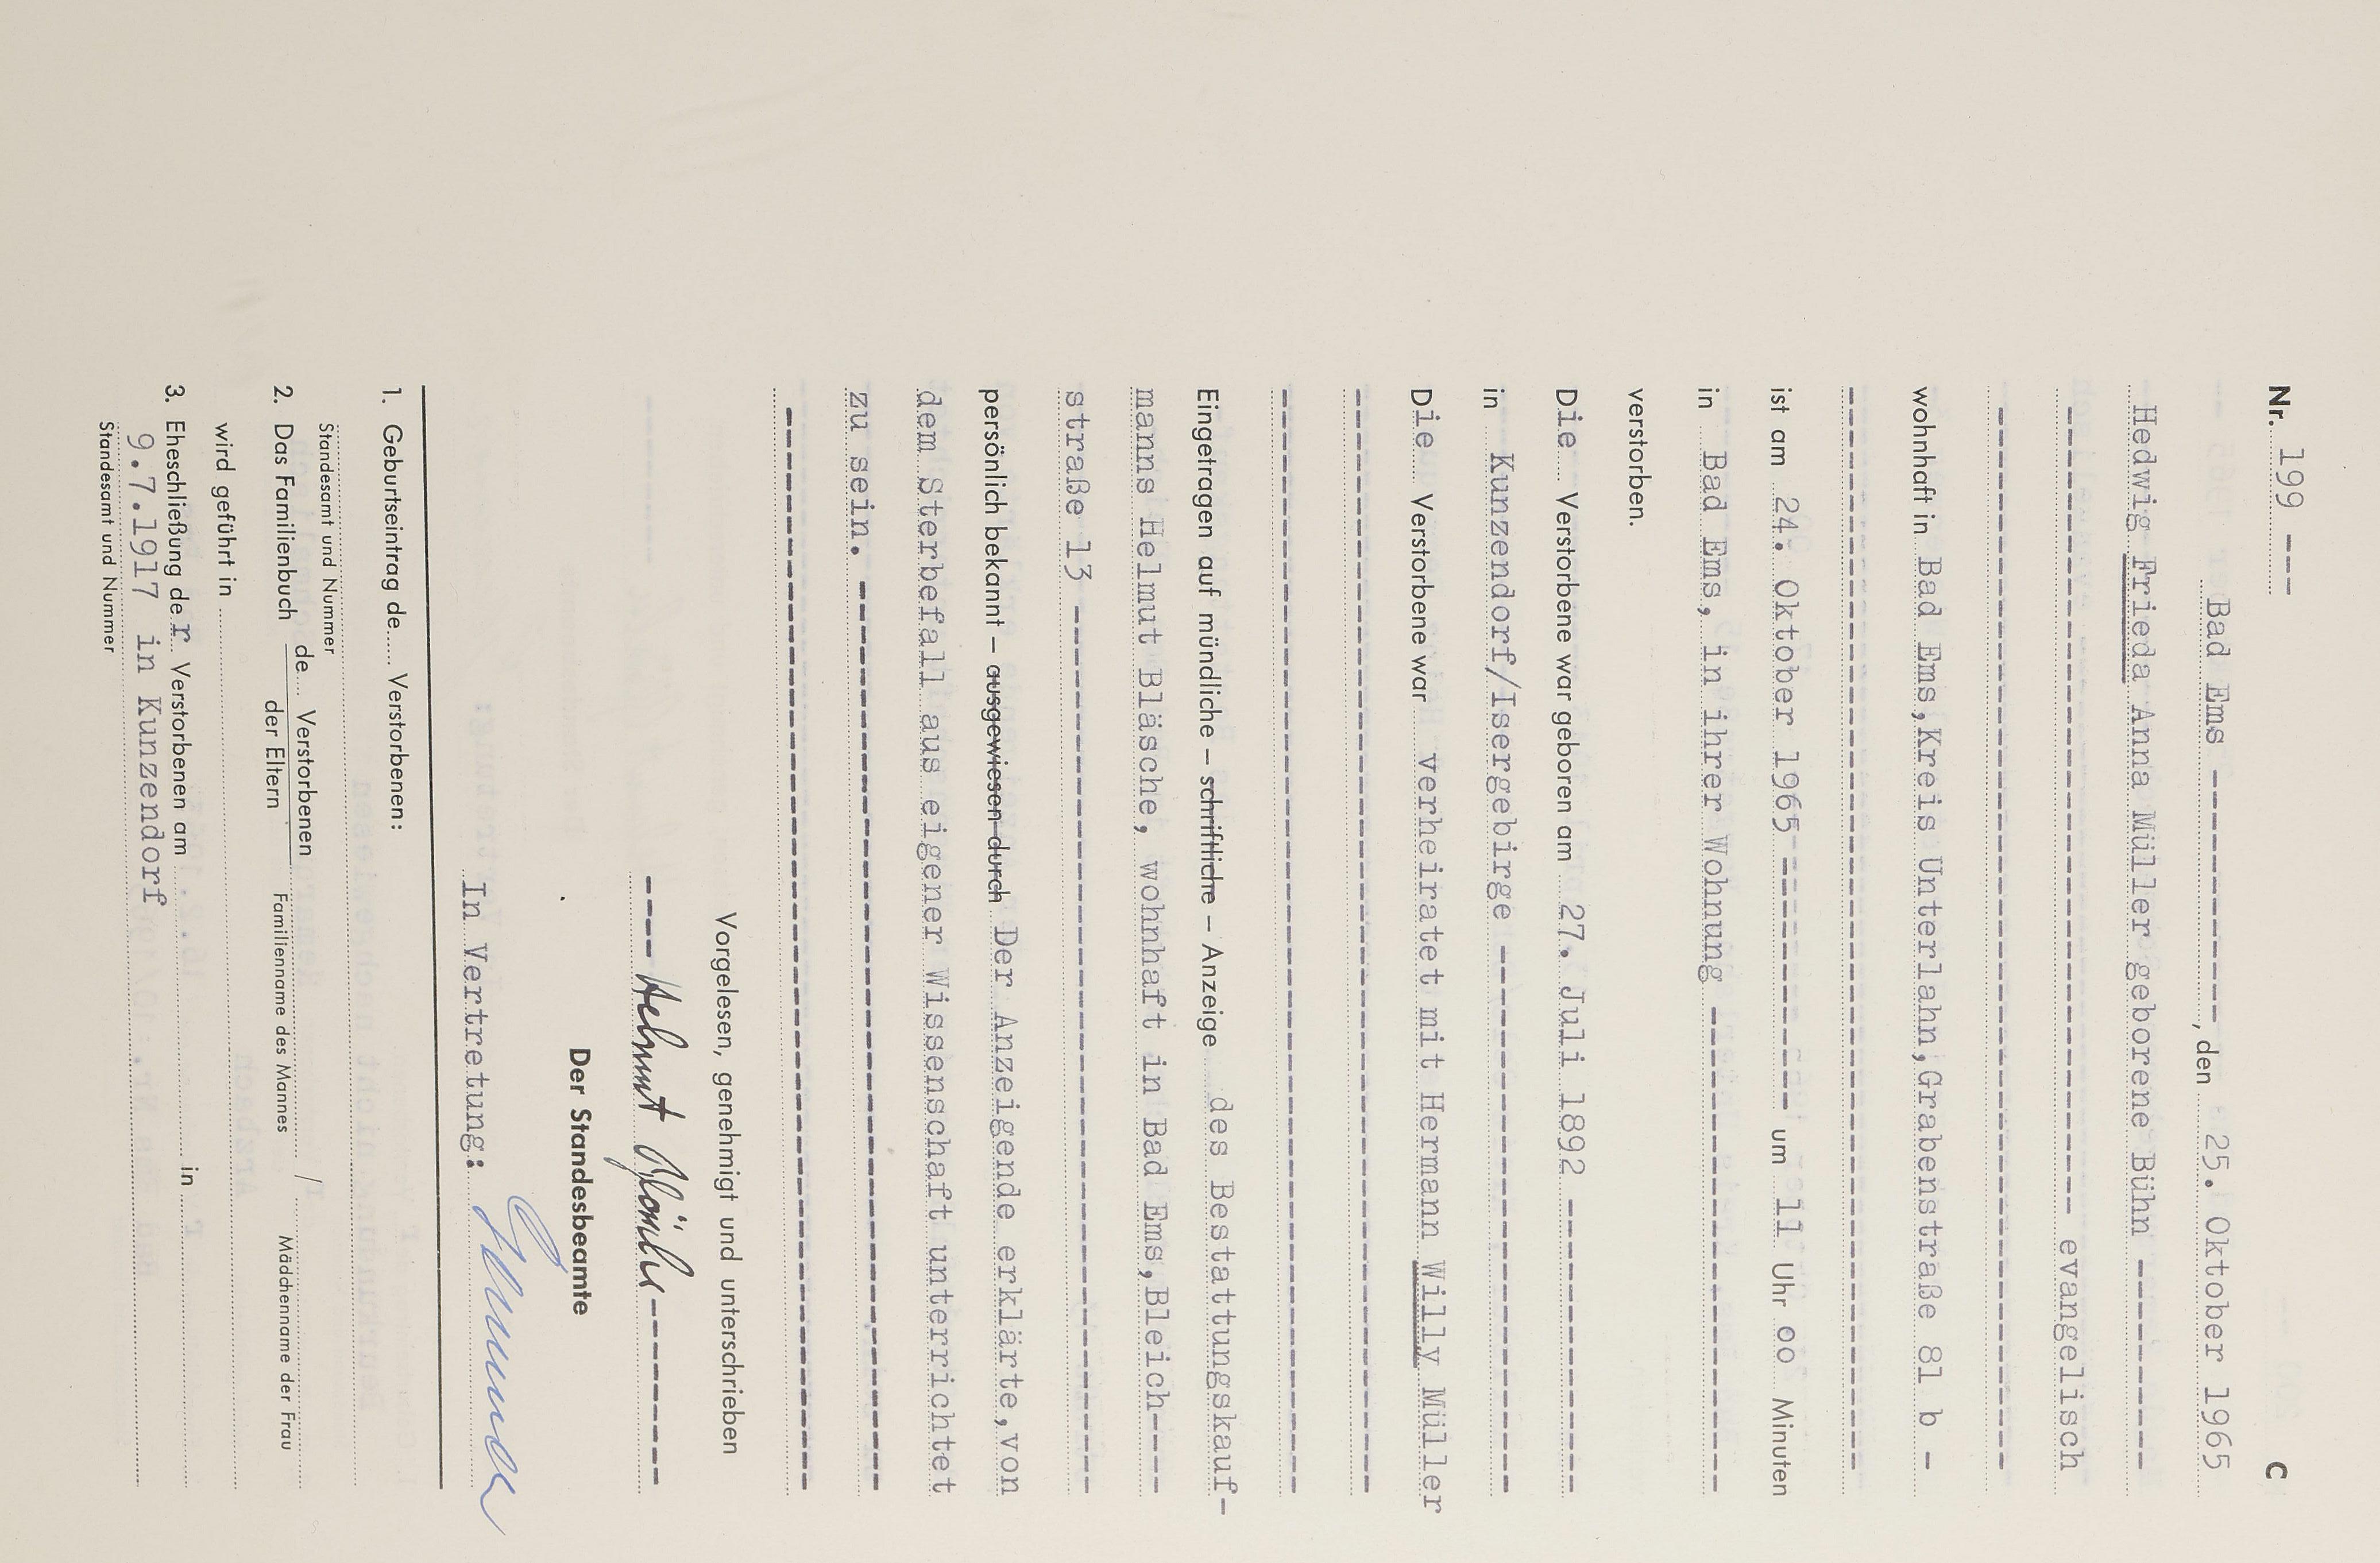 Nr. 199 --- C
Bad Ems -------------, den 25. Oktober 1965
Hedwig Frieda Anna Müller geborene Bühn -----------
------------------------------------------ evangelisch
------------------------------------------------------
wohnhaft in Bad Ems,Kreis Unterlahn,Grabenstraße 81 b -
------------------------------------------------------
ist am 24. Oktober 1965 ------------- um 11 Uhr oo Minuten
in Bad Ems, in ihrer Wohnung -------------------------
verstorben.
Die Verstorbene war geboren am 27. Juli 1892 ---------------
in Kunzendorf/Isergebirge ----------------------------
Die Verstorbene war verheiratet mit Hermann Willy Müller
------------------------------------------------------
------------------------------------------------------
Eingetragen auf mündliche – schriftliche – Anzeige des Bestattungskauf-
manns Helmut Bläsche, wohnhaft in Bad Ems,Bleich----
straße 13 --------------------------------------------
persönlich bekannt – ausgewiesen durch Der Anzeigende erklärte,von
dem Sterbefall aus eigener Wissenschaft unterrichtet
zu sein. ---------------------------------------------
------------------------------------------------------
Vorgelesen, genehmigt und unterschrieben
---- Helmut Bläsche ----------
Der Standesbeamte
In Vertretung:
1. Geburtseintrag de..... Verstorbenen:
Standesamt und Nummer
2. Das Familienbuch de.... Verstorbenen / 
der Eltern Familienname des Mannes Mädchenname der Frau
wird geführt in
3. Eheschließung der Verstorbenen am in
9.7.1917 in Kunzendorf
Standesamt und Nummer